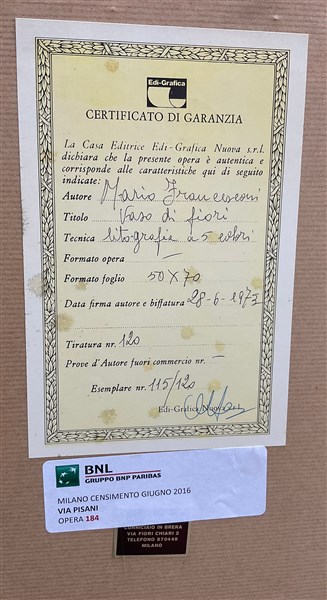 Edi-Grafica
CERTIFICATO DI GARANZIA
La Casa Editrice Edi-Grafica Nuova s.r.l.
dichiara che la presente opera è autentica e
corrisponde alle caratteristiche qui di seguito
indicate:
Autore Mario Francesconi
Titolo Vaso di fiori
Tecnica litografia a 5 colori
Formato opera —
Formato foglio 50 x 70
Data firma autore e biffatura 28-6-1973
Tiratura nr. 120
Prove d'Autore fuori commercio nr. —
Esemplare nr. 115/120
Edi-Grafica Nuova
BNL
GRUPPO BNP PARIBAS
MILANO CENSIMENTO GIUGNO 2016
VIA PISANI
OPERA 184
CORNICIAIO IN BRERA
VIA FIORI CHIARI 2
TELEFONO 870446
MILANO